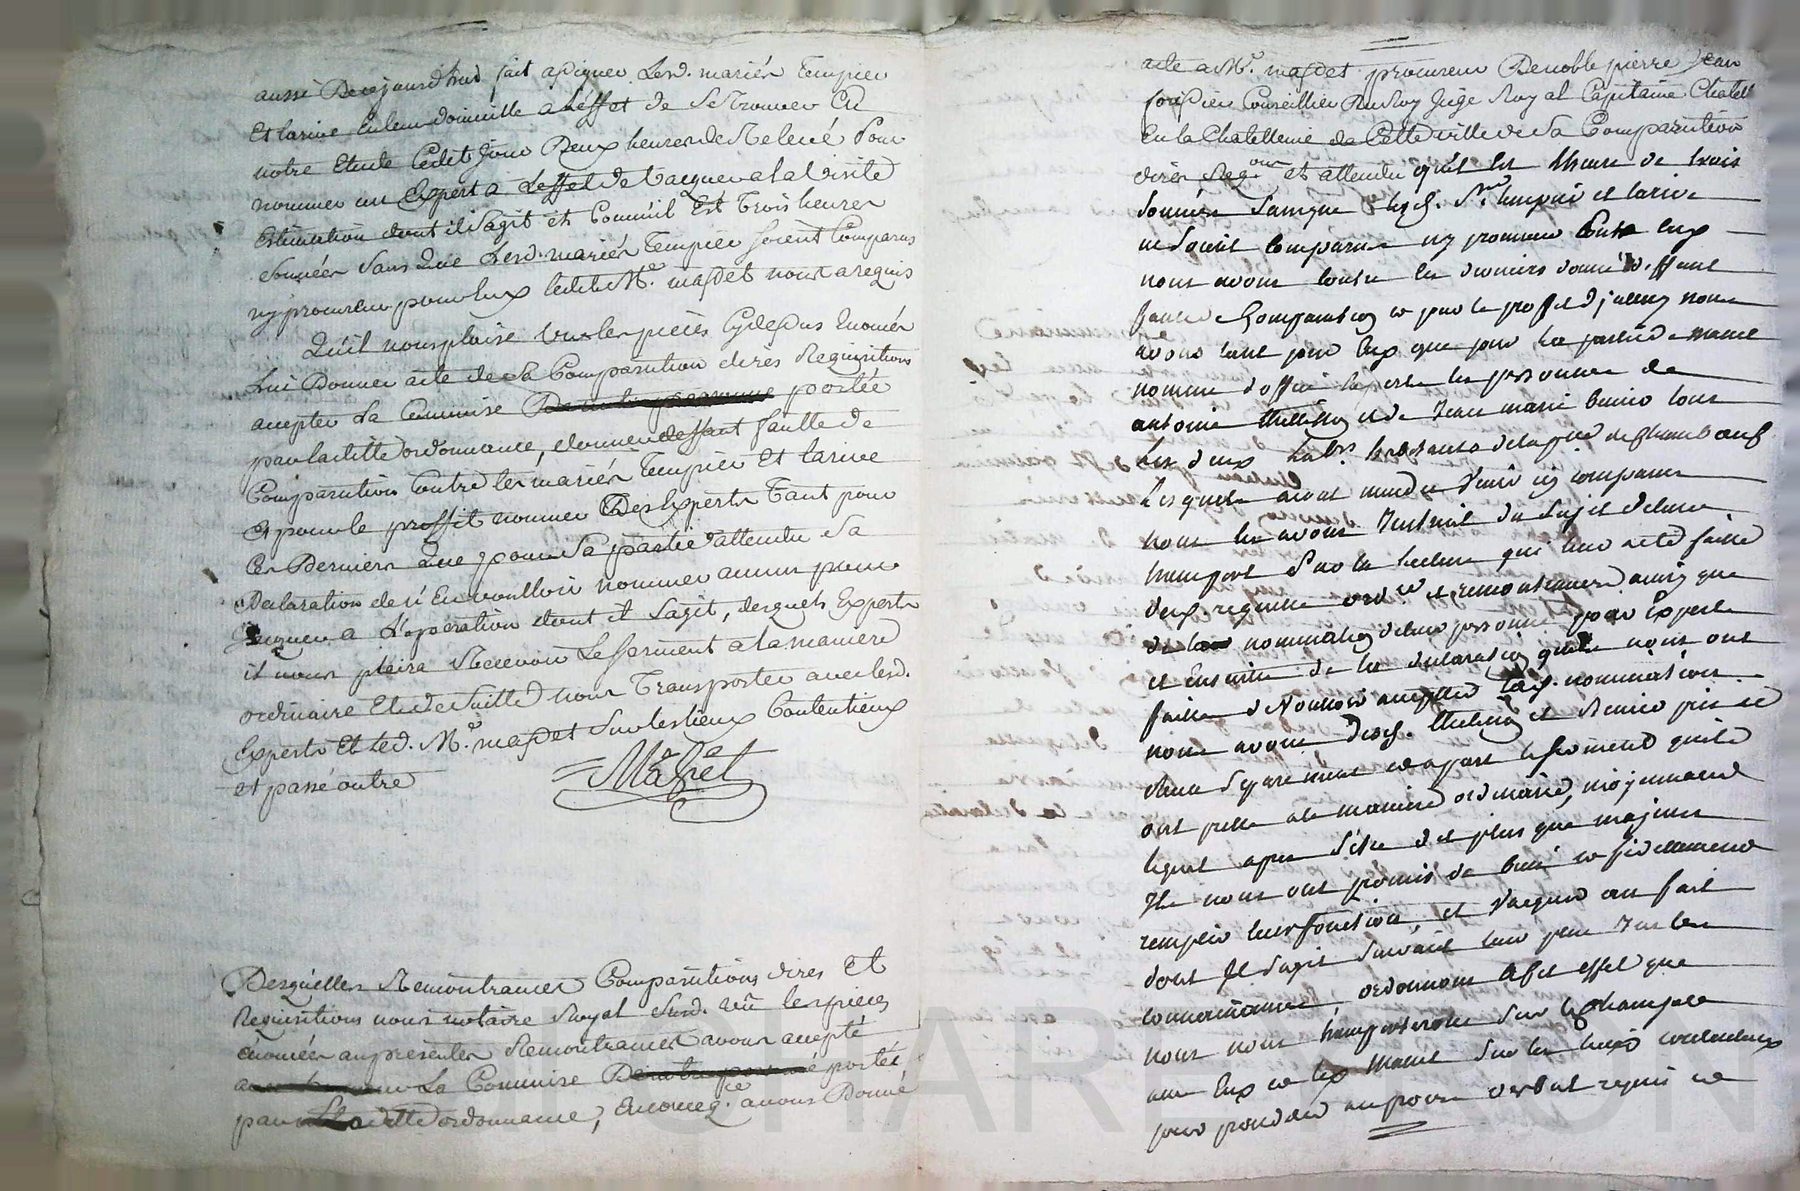 aussi De cejourd'huy fait assigner Lesd. mariés Tempier
Et Larive En leur domicille a Leffet de Se trouver En
notre Etude Cedit jour Deux heures de Relevé Pour
nommer un Expert a Leffet de Vacquer a la Visite
Estimation dont il Sagit et Comme il Est Trois heures
sonnées Sans que Lesd. mariés Tempier soient Comparus
ny procureur pour Eux ledit Me. masdet nous a requis
Qu'il nous plaise Vu les pieces Cy dessus Enoncés
Lui Donner acte de sa Comparution dires Requisitions
accepter La Commise portée
par laditte ordonnance, donner deffaut faulte de
Comparution Contre les mariés Tempier Et Larive
Et pour le proffit nommer Des Experts Tant pour
Ces Derniers que pour Sa partie attendu Sa
Declaration de n'En voulloir nommer aucun pour
vacquer a l'operation dont il Sagit, desquels Experts
il nous plaira Recevoir Le serment a la maniere
ordinaire Et de Suitte nous Transporter avec lesd.
Experts Et led. Me. masdet Sur les lieux Contentieux
et passé outre
Masdet
Desquelles Remontrances Comparutions dires Et
Requisitions nous notaire Royal Susd. vû les pieces
énoncées au presentes Remontrances avons accepté
La Commise portée
par laditte ordonnance, En conseqce. avons Donné
acte a Me. masdet procureur De noble pierre Jean
Conseiller Du Roy Juge Royal Capitaine Chatel
En la Chatellenie de Cette ville de Sa Comparution
dires Requons et attendu qu'il Est Lheure de trois
sonnées Sans que lesd. Srs. tempier et larive
ne Soient Comparus ny procureur pour Eux
nous avons contre les derniers donné deffaut
faute de Comparution et pour le proffit d'jcelluy nous
avons tant pour Eux que pour la partie de masdet
nommé d'office Experts les personnes de
antoine et de Jean marie tous
Les deux habts.
Lesquels ayant mandés Venir icy comparus
nous les avons Instruit du Sujet de leur
transport Par la lecture qui leur a été faitte
desd. requette ordce et remontrances ainsy que
de la nomination de leur personne pour Experts
et Ensuitte de la declaration qu'ils nous ont
faitte de Vouloir accepter lad. nomination
nous avons desd. et pris et
Receu Separement et apart le serment qu'ils
ont pretté a la maniere ordinaire, moyennant
lequel apres s'être dit plus que majeurs
Ils nous ont promis de bien et fidellement
remplir leurs fonction et vacquer au fait
dont Il Sagit Suivant leur pure
connoissance ordonnons a Cet effet que
nous nous transporterons Sur le Champ avec
avec Eux et led. Masdet Sur les lieux contentieux
pour proceder au proces verbal requis et
CHARETRON